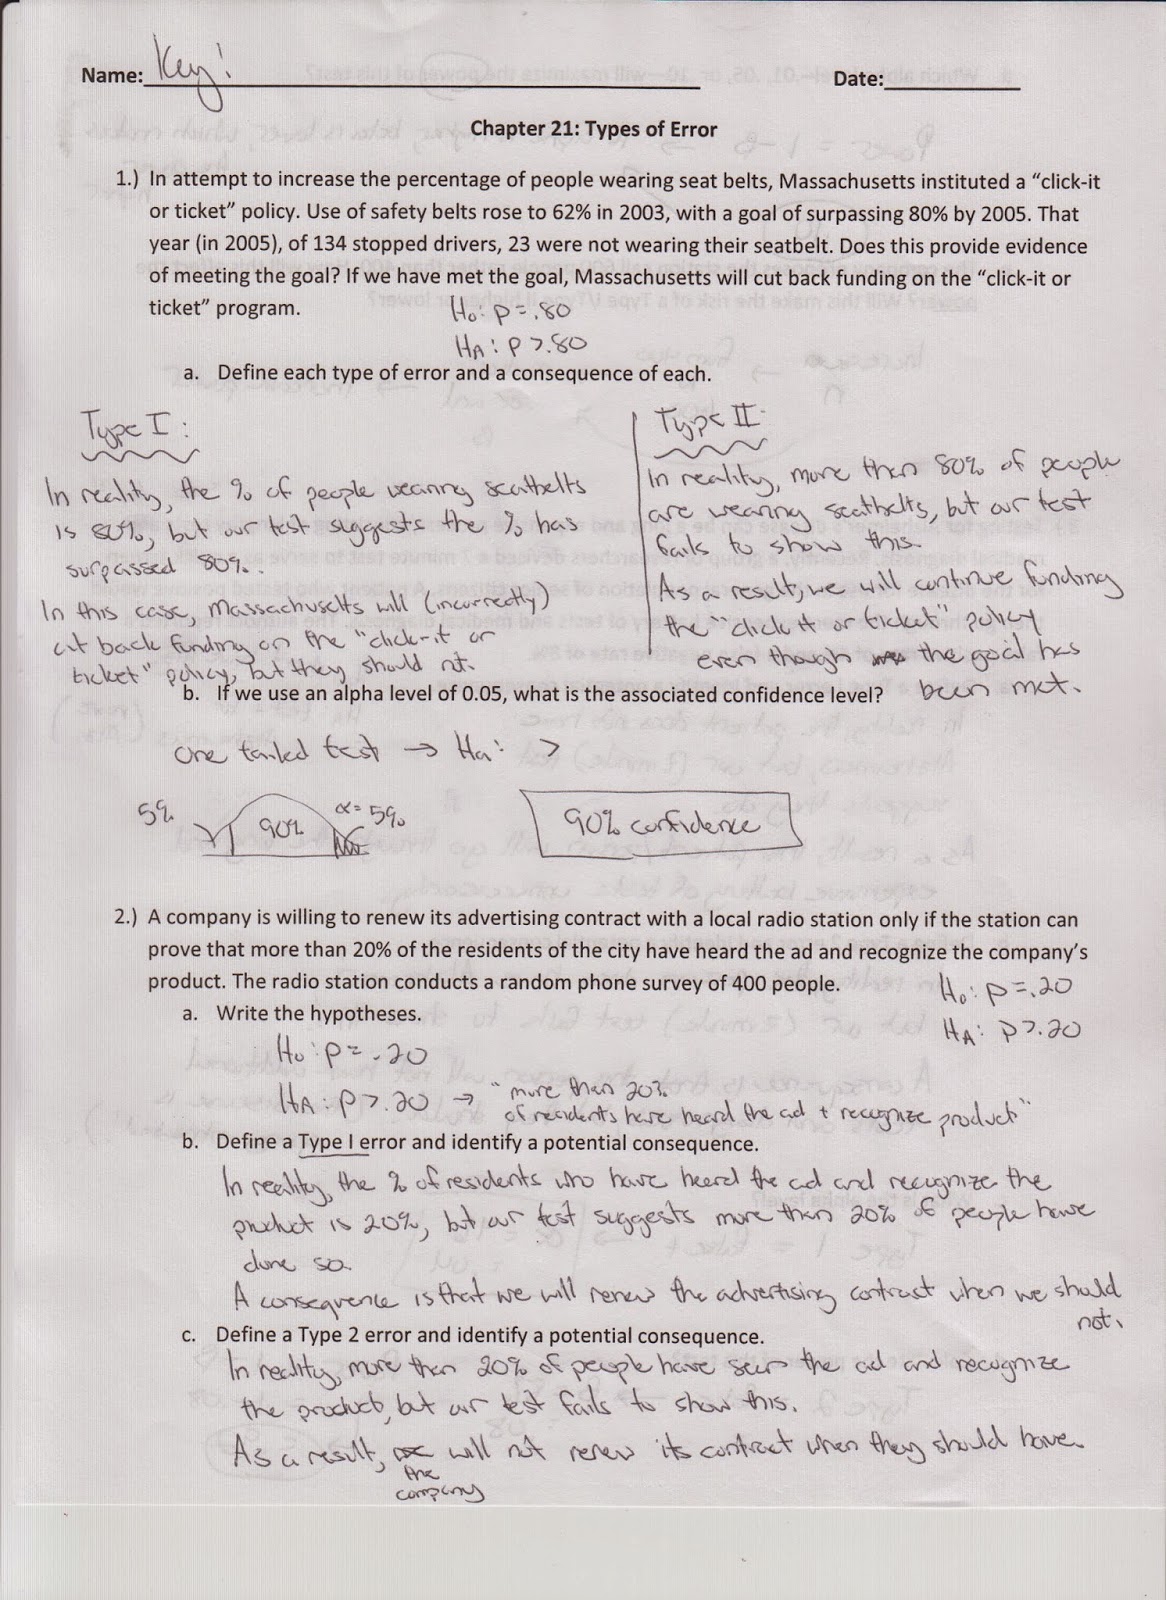 Name: Key! Date:
Chapter 21: Types of Error
1.) In attempt to increase the percentage of people wearing seat belts, Massachusetts instituted a “click-it
or ticket” policy. Use of safety belts rose to 62% in 2003, with a goal of surpassing 80% by 2005. That
year (in 2005), of 134 stopped drivers, 23 were not wearing their seatbelt. Does this provide evidence
of meeting the goal? If we have met the goal, Massachusetts will cut back funding on the “click-it or
ticket” program.
Ho: p = .80
HA: p > .80
a. Define each type of error and a consequence of each.
Type I:
In reality, the % of people wearing seatbelts
is 80%, but our test suggests the % has
surpassed 80%.
In this case, Massachusetts will (incorrectly)
cut back funding on the "click-it or
ticket" policy, but they should not.
Type II:
In reality, more than 80% of people
are wearing seatbelts, but our test
fails to show this.
As a result, we will continue funding
the "click it or ticket" policy
even though the goal has
been met.
b. If we use an alpha level of 0.05, what is the associated confidence level?
one tailed test → Ha: >
5% 90% α= 5%
90% confidence
2.) A company is willing to renew its advertising contract with a local radio station only if the station can
prove that more than 20% of the residents of the city have heard the ad and recognize the company’s
product. The radio station conducts a random phone survey of 400 people.
Ho: p = .20
HA: p > .20
a. Write the hypotheses.
Ho: p = .20
HA: p > .20 → "more than 20%
of residents have heard the ad + recognize product"
b. Define a Type I error and identify a potential consequence.
In reality, the % of residents who have heard the ad and recognize the
product is 20%, but our test suggests more than 20% of people have
done so.
A consequence is that we will renew the advertising contract when we should
not.
c. Define a Type 2 error and identify a potential consequence.
In reality, more than 20% of people have seen the ad and recognize
the product, but our test fails to show this.
As a result, the company will not renew its contract when they should have.